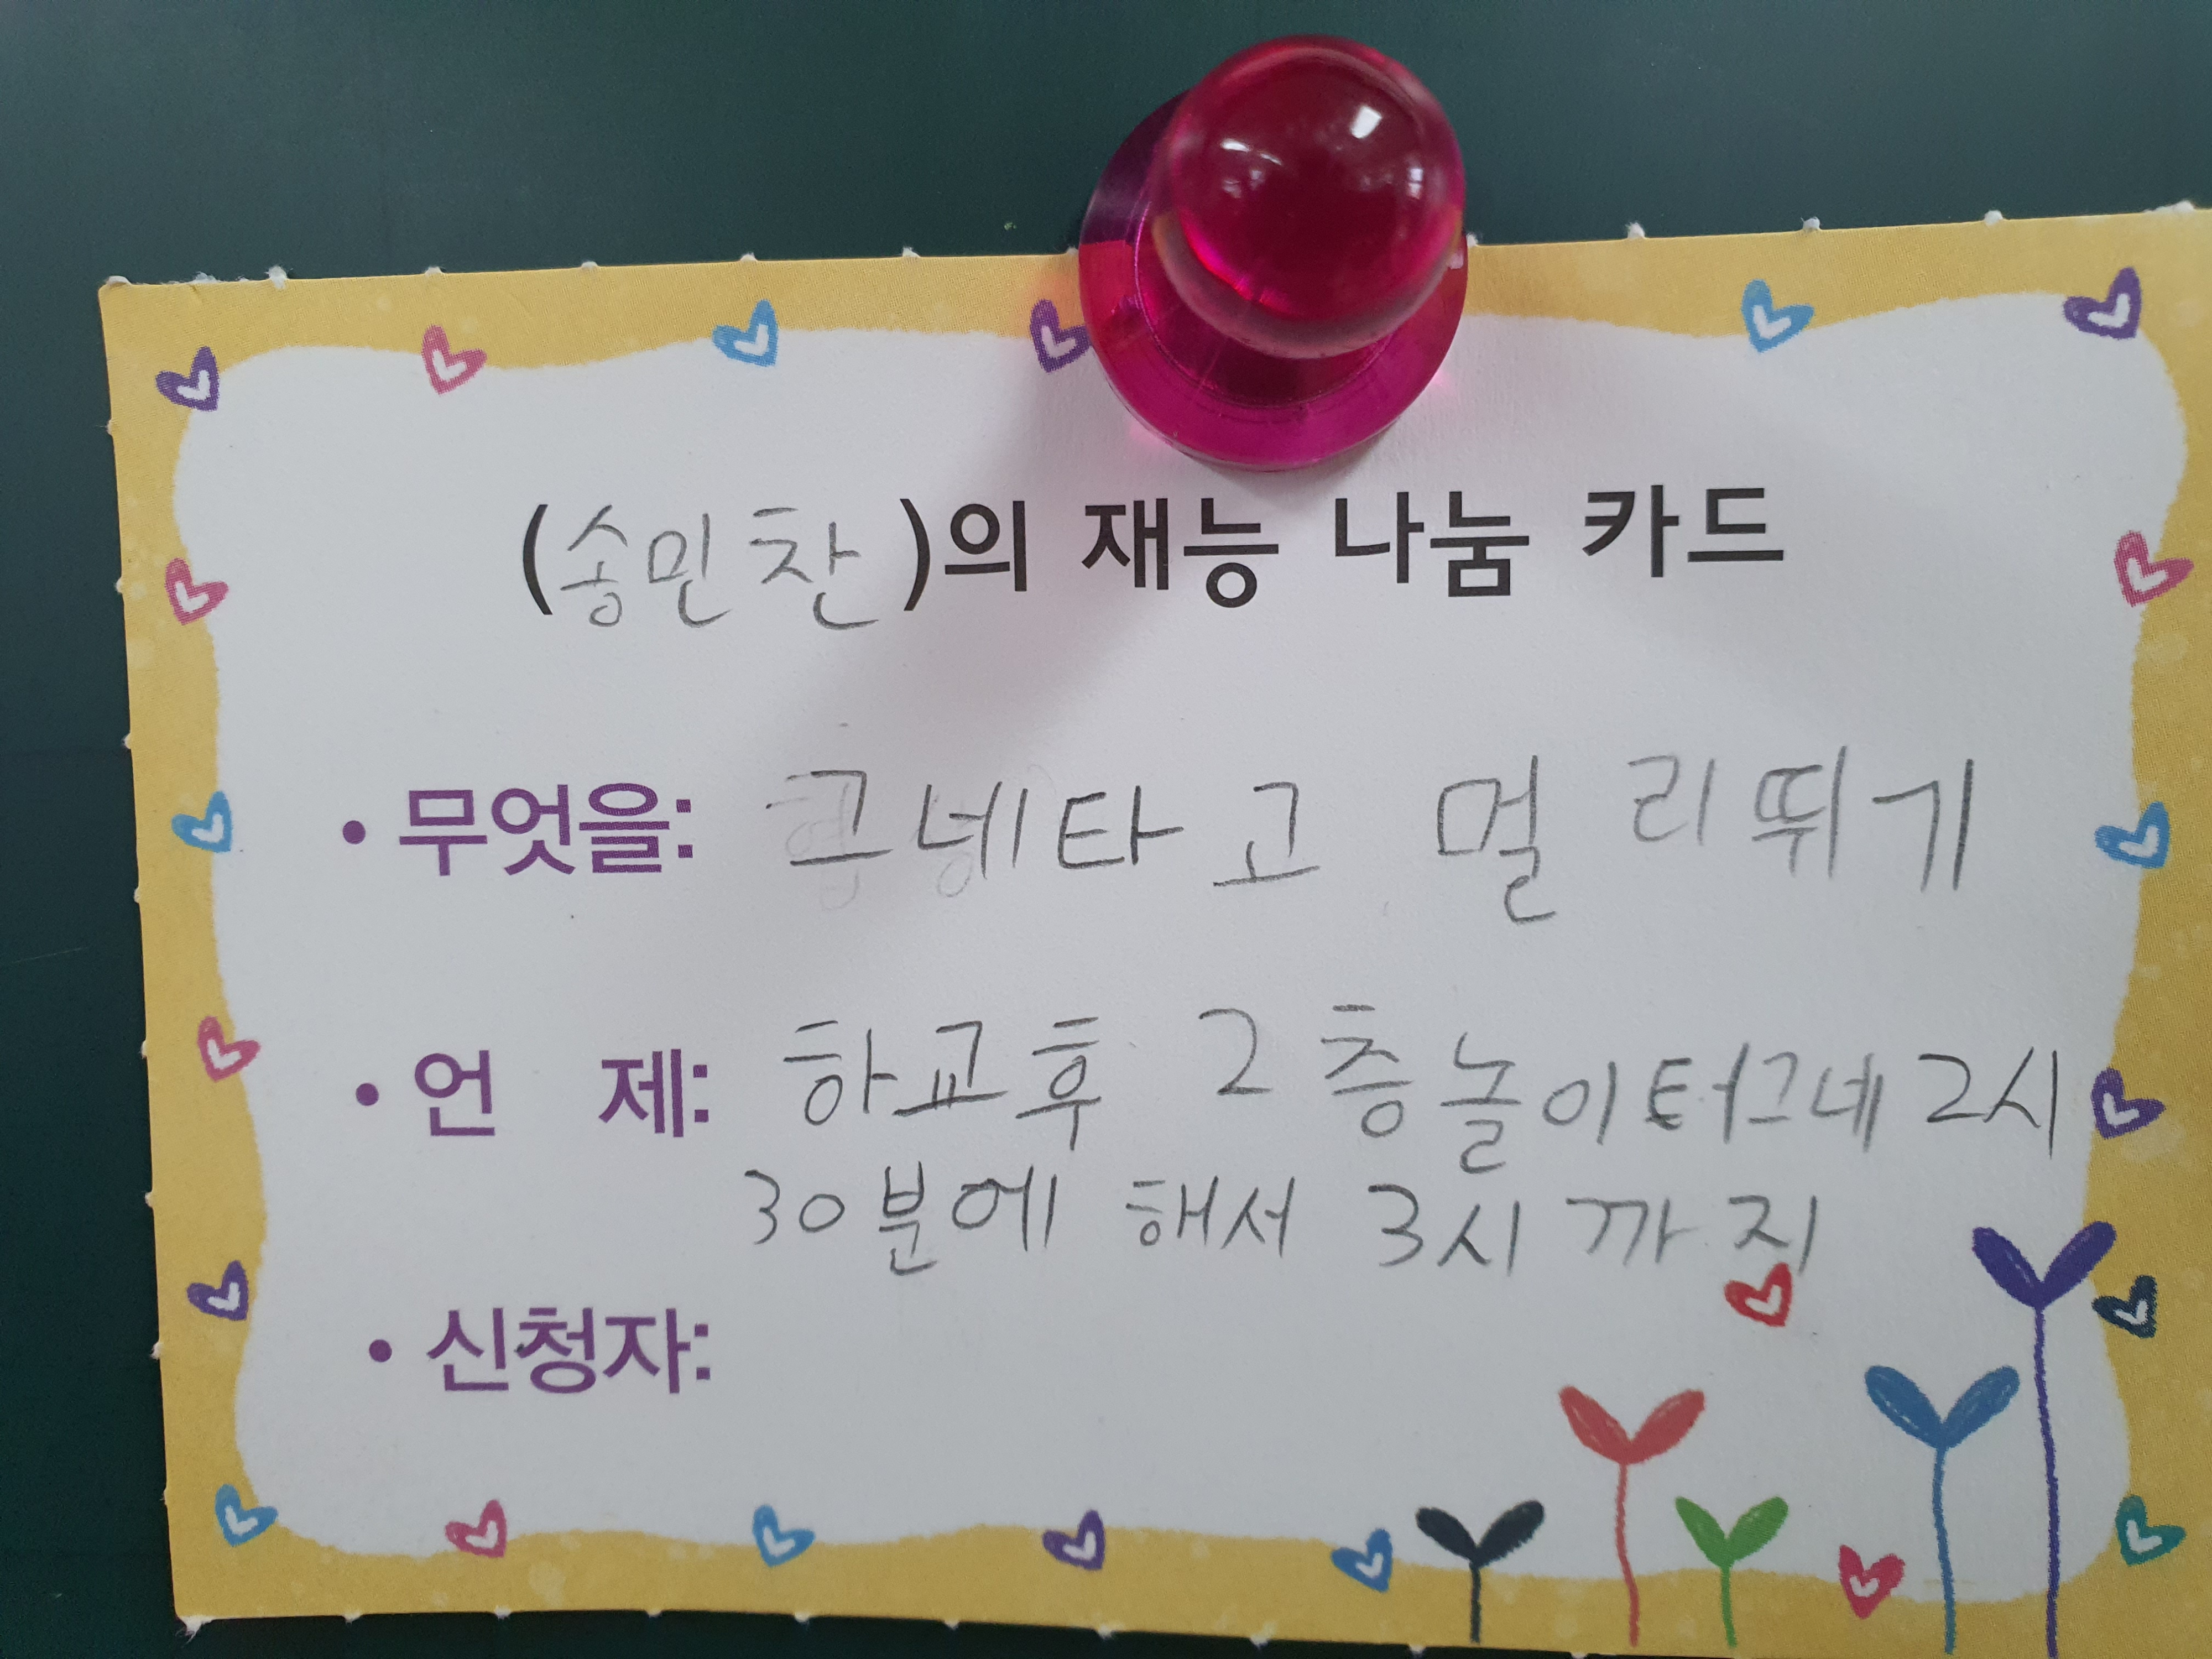 (송민찬)의 재능 나눔 카드
• 무엇을: 그네타고 멀리뛰기
• 언 제: 하교후 2층놀이터그네 2시
30분에 해서 3시까지
• 신청자: